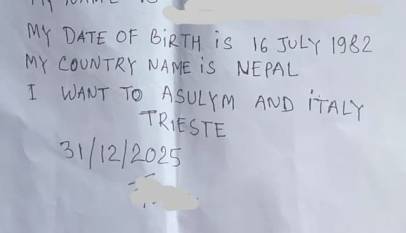 MY DATE OF BiRTH is 16 JULY 1982
MY COUNTRY NAME iS NEPAL
I WANT TO ASULYM AND iTALY
TRIESTE
31/12/2025